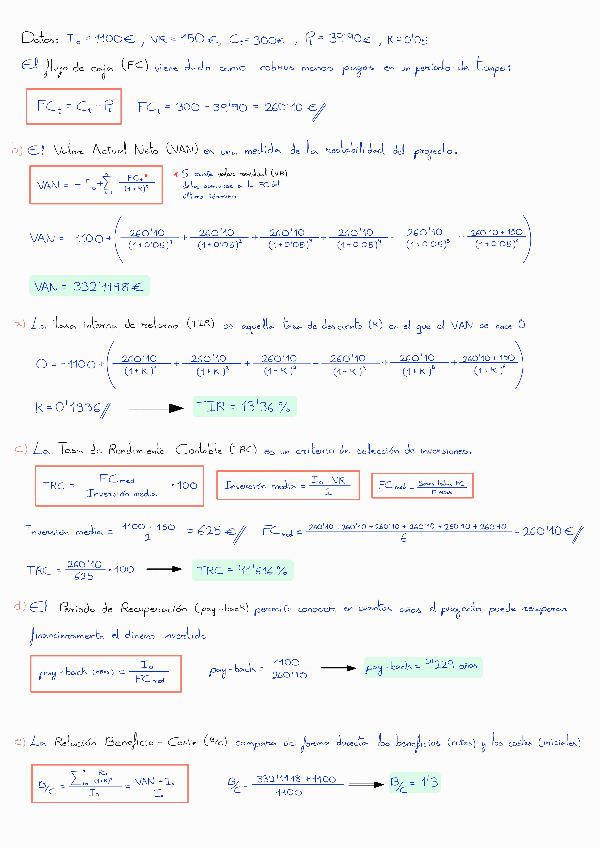 Datos: I₀ = 1100 €, VR = 150 €, Cₜ = 300 €, Pₜ = 39'90 €, K = 0'05
El flujo de caja (FC) viene dado como cobros menos pagos en un periodo de tiempo:
FCₜ = Cₜ - Pₜ FCₜ = 300 - 39'90 = 260'10 €//
a) El Valor Actual Neto (VAN) es una medida de la rentabilidad del proyecto.
VAN = - I₀ + Σ FCₜ* / (1+K)ᵗ
* Si existe valor residual (VR)
debe sumarse a la FC del
último término
VAN = -1100 + ( 260'10 / (1+0'05)¹ + 260'10 / (1+0'05)² + 260'10 / (1+0'05)³ + 260'10 / (1+0'05)⁴ + 260'10 / (1+0'05)⁵ + 260'10 + 150 / (1+0'05)⁶ )
VAN = 332'1198 €
b) La tasa interna de retorno (TIR) es aquella tasa de descuento (K) en el que el VAN se hace 0
0 = -1100 + ( 260'10 / (1+K)¹ + 260'10 / (1+K)² + 260'10 / (1+K)³ + 260'10 / (1+K)⁴ + 260'10 / (1+K)⁵ + 260'10 + 150 / (1+K)⁶ )
K = 0'1336// → TIR = 13'36 %
c) La Tasa de Rendimiento Contable (TRC) es un criterio de selección de inversiones.
TRC = FC med / Inversión media · 100 Inversión media = I₀ + VR / 2 FC med = Suma todos FC / nº años
Inversión media = 1100 + 150 / 2 = 625 €// FC med = 260'10 + 260'10 + 260'10 + 260'10 + 260'10 + 260'10 / 6 = 260'10 €//
TRC = 260'10 / 625 · 100 → TRC = 41'616 %
d) El Periodo de Recuperación (pay-back) permite conocer en cuantos años el proyecto puede recuperar
financieramente el dinero invertido
pay-back (años) = I₀ / FC med pay-back = 1100 / 260'10 → pay-back = 4'229 años
e) La Relación Beneficio-Coste (B/C) compara de forma directa los beneficios (netos) y los costes (iniciales)
B/C = Σ Rₜ / (1+K)ᵗ / I₀ = VAN + I₀ / I₀ B/C = 332'1198 + 1100 / 1100 → B/C = 1'3